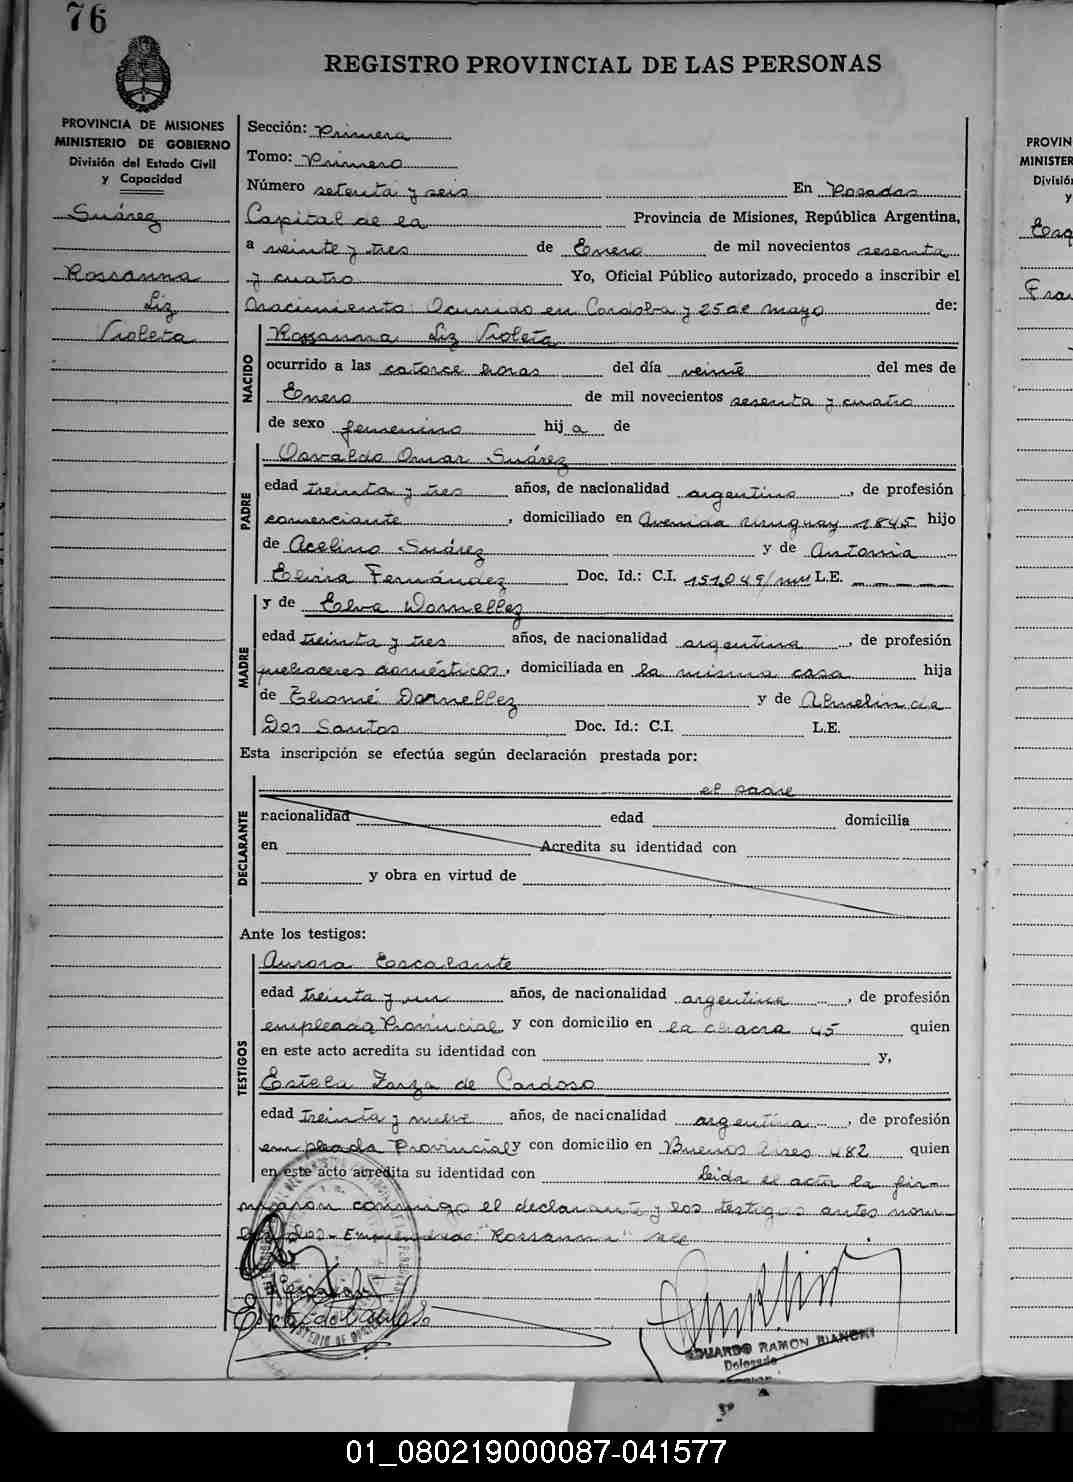 76
REGISTRO PROVINCIAL DE LAS PERSONAS
PROVINCIA DE MISIONES
MINISTERIO DE GOBIERNO
División del Estado Civil
y Capacidad
Suárez
Rossanna
Liz
Violeta
Sección: Primera
Tomo: Primero
Número setenta y seis En Posadas
Capital de la Provincia de Misiones, República Argentina,
a veinte y tres de Enero de mil novecientos sesenta
y cuatro Yo, Oficial Público autorizado, procedo a inscribir el
nacimiento: Ocurrido en Cordoba y 25 de mayo de:
NACIDO
Rossanna Liz Violeta
ocurrido a las catorce horas del día veinte del mes de
Enero de mil novecientos sesenta y cuatro
de sexo femenino hija de
PADRE
Osvaldo Omar Suárez
edad treinta y tres años, de nacionalidad argentino, de profesión
comerciante, domiciliado en Avenida Uruguay 1845 hijo
de Acelino Suárez y de Antonia
Elvira Fernández Doc. Id.: C.I. 151.049/ L.E. — — — —
MADRE
y de Elva Dornellez
edad treinta y tres años, de nacionalidad argentina, de profesión
quehaceres domésticos, domiciliada en la misma casa hija
de Thomé Dornellez y de
Dos Santos Doc. Id.: C.I. L.E.
Esta inscripción se efectúa según declaración prestada por:
DECLARANTE
el padre
nacionalidad edad domicilia
en Acredita su identidad con
y obra en virtud de
Ante los testigos:
TESTIGOS
Aurora Escalante
edad treinta y un años, de nacionalidad argentina, de profesión
empleada Provincial y con domicilio en la chacra 45 quien
en este acto acredita su identidad con y,
Estela Zarza de Cardoso
edad treinta y nueve años, de nacionalidad argentina, de profesión
empleada Provincial y con domicilio en Buenos Aires 482 quien
en este acto acredita su identidad con Leida el acta la fir-
maron conmigo el declarante y los testigos antes nom-
brados - Enmendado: "Rossanna" vale
EDUARDO RAMON BIANCHI
Delegado
PROVIN
MINISTER
Divisió
y
Fra
01_080219000087-041577